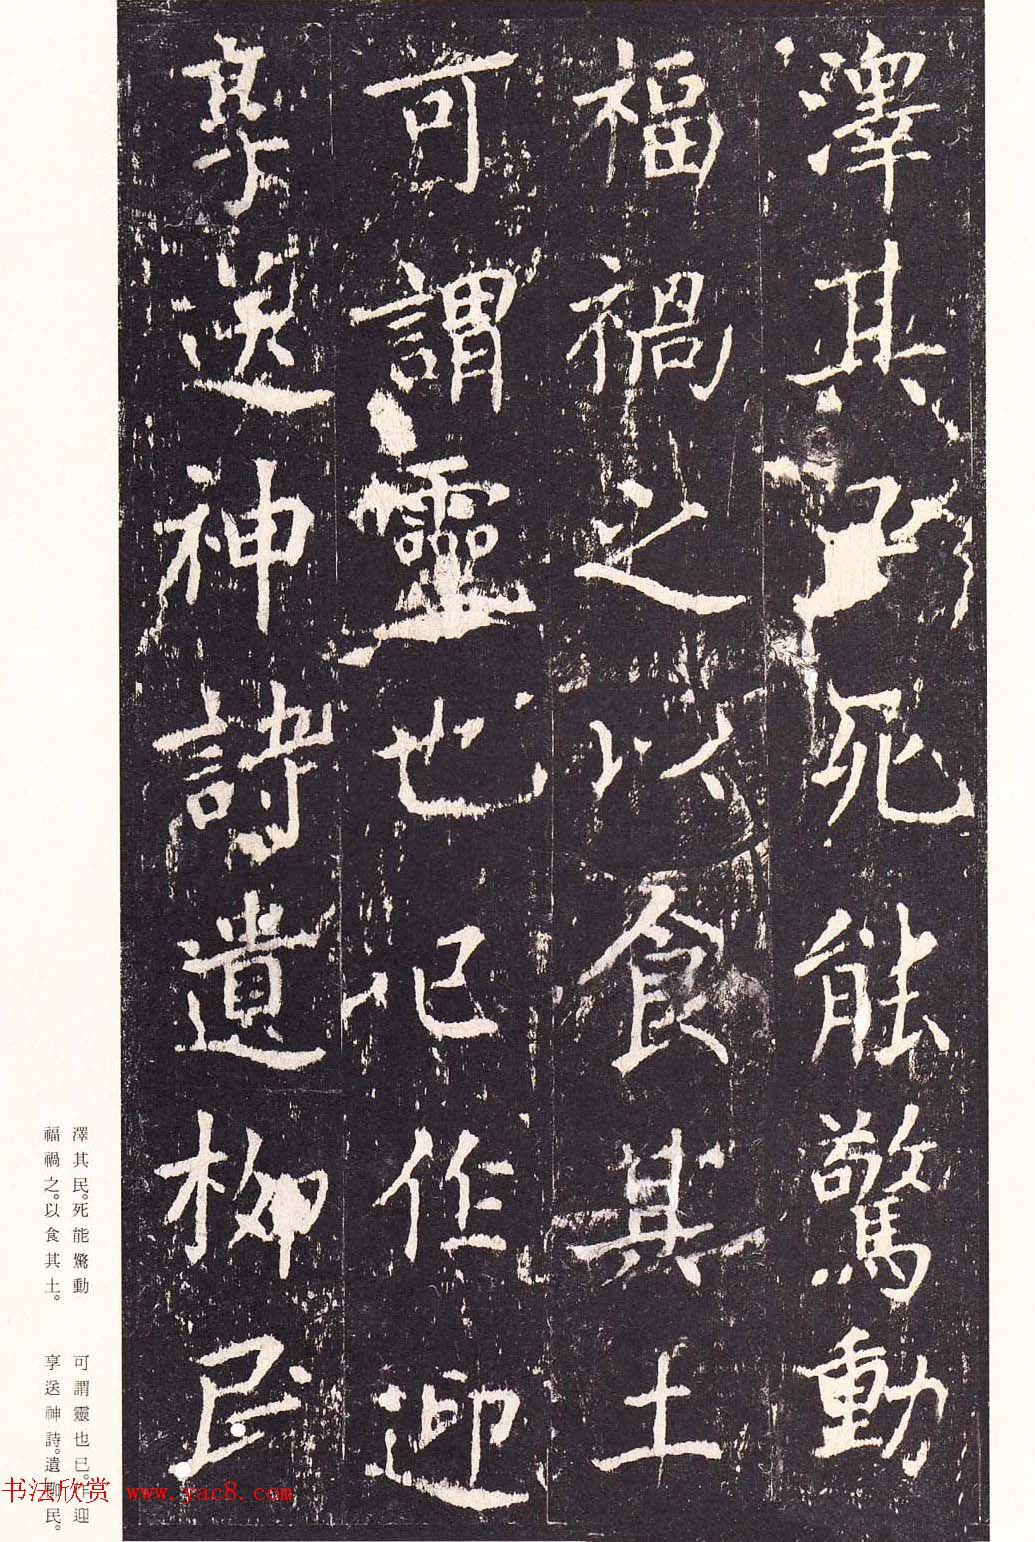 澤其民死能驚動
福禍之以食其土
可謂靈也已作迎
享送神詩遺柳民
澤其民。死能驚動
福禍之。以食其土。
可謂靈也已。作迎
享送神詩。遺柳民。
书法欣赏 www.yac8.com